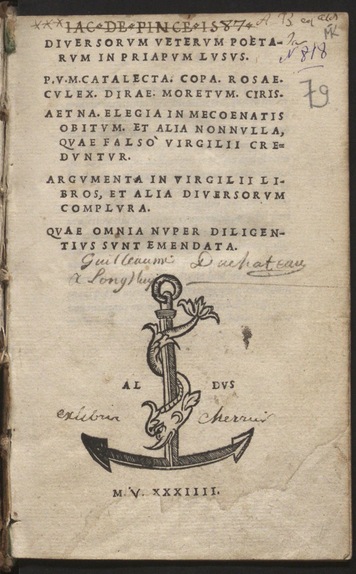 IAC·DE·PINCÉ·1587
DIVERSORVM VETERVM POETA-
RVM IN PRIAPVM LVSVS.
P.V.M.CATALECTA. COPA. ROSAE.
CVLEX. DIRAE. MORETVM. CIRIS.
AETNA. ELEGIA IN MECOENATIS
OBITVM. ET ALIA NONNVLLA,
QVAE FALSO VIRGILII CRE=
DVNTVR.
ARGVMENTA IN VIRGILII LI-
BROS, ET ALIA DIVERSORVM
COMPLVRA.
QVAE OMNIA NVPER DILIGEN-
TIVS SVNT EMENDATA.
79
Guilleaume Duchateau
AL DVS
M.V.XXXIIII.